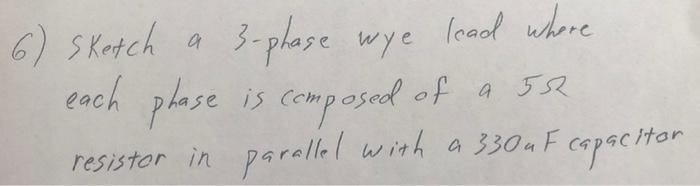 6) Sketch a 3-phase wye load where
each phase is composed of a 5Ω
resistor in parallel with a 330uF capacitor